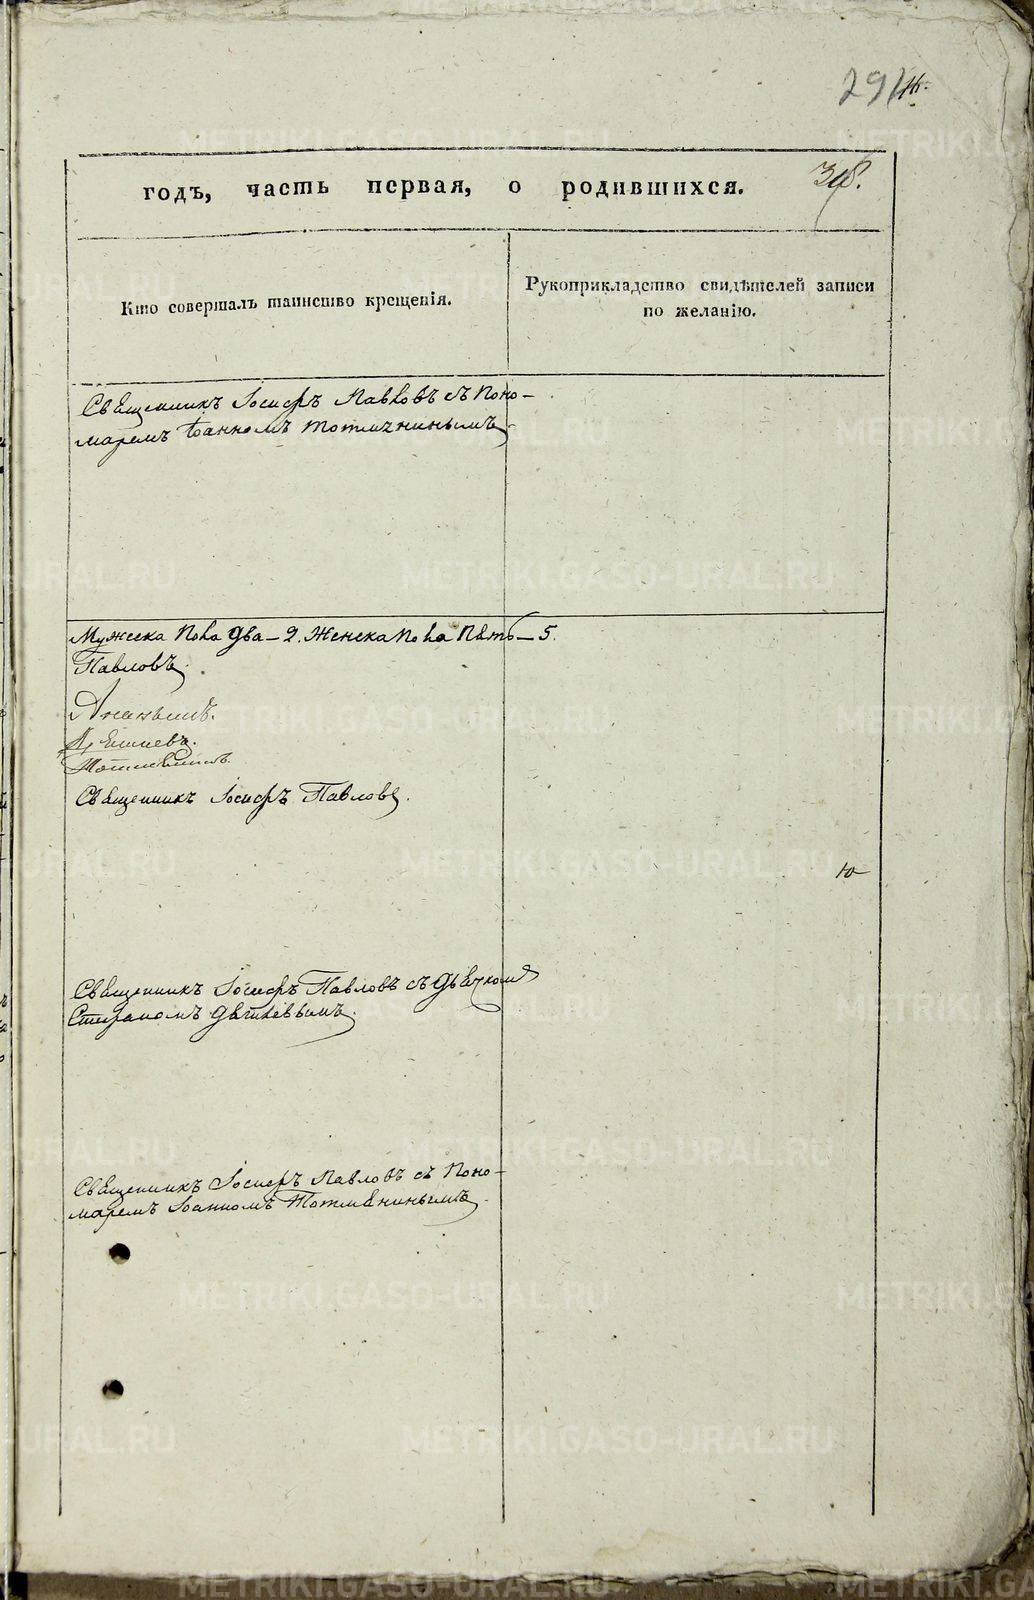 291
годъ, часть первая, о родившихся.
Кто совершалъ таинство крещенія.
Рукоприкладство свидѣтелей записи
по желанію.
Священникъ Іосифъ Павловъ съ Поно-
маремъ Іоанномъ Тотмѣнинымъ
Мужеска пола два - 2. Женска пола пять - 5.
Павловъ.
Ананьинъ.
Священникъ Іосифъ Павловъ.
Священникъ Іосифъ Павловъ съ Дьячкомъ
Стефаномъ
Священникъ Іосифъ Павловъ съ Поно-
маремъ Іоанномъ Тотмѣнинымъ
METRIKI.GASO-URAL.RU